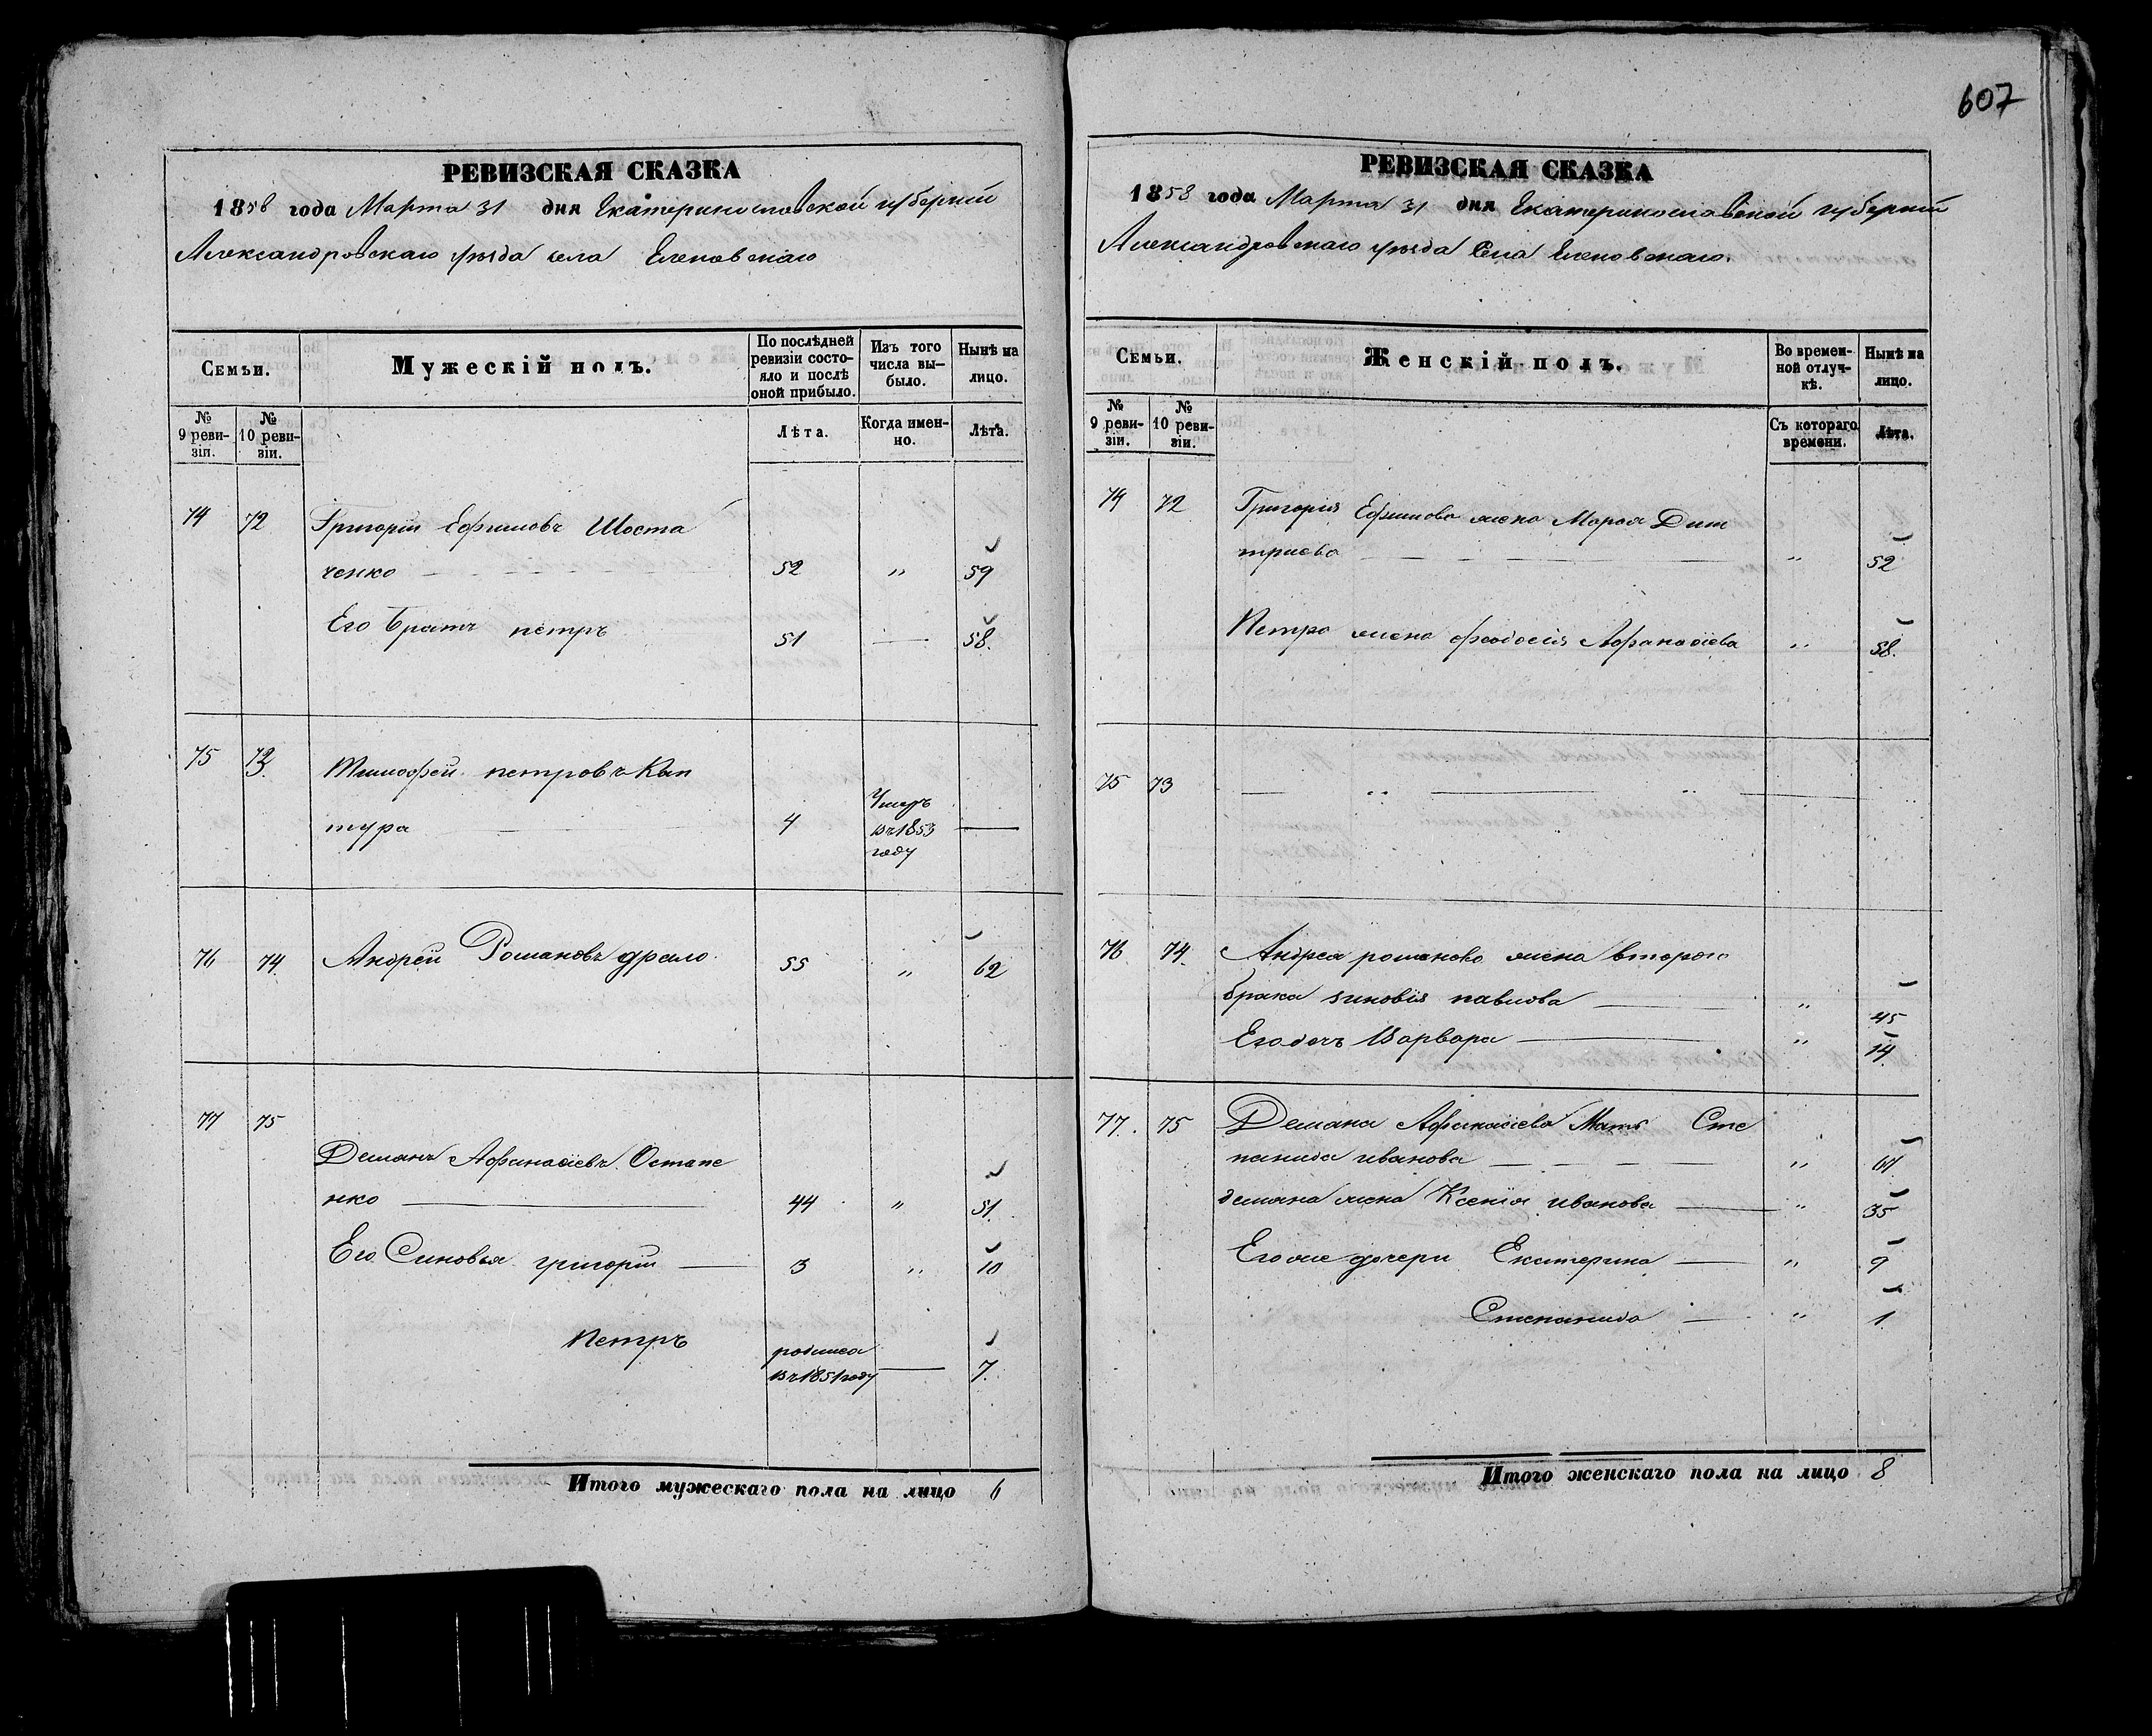 607
РЕВИЗСКАЯ СКАЗКА
1858 года Марта 31 дня Екатеринославской губерніи
Александровскаго уѣзда села Еленовскаго
Семьи.
Мужескій полъ.
По послѣдней ревизіи состояло и послѣ оной прибыло.
Изъ того числа выбыло.
Нынѣ на лицо.
№ 9 ревизіи.
№ 10 ревизіи.
Лѣта.
Когда именно.
Лѣта.
74 72 Григорій Ефимовъ Шоста
ченко 52 " 59
Его Братъ петръ 51 — 58.
75 73 Тимофей петровъ Кап
тура 4 Умеръ въ 1853 году —
76 74. Андрей Романовъ 55 " 62
77 75
Демянъ Афанасіевъ Остапе
нко 44 " 51.
Его Синовья григорій — 3 " 10
Петръ родился въ 1851 году — 7.
Итого мужескаго пола на лицо 6
РЕВИЗСКАЯ СКАЗКА
1858 года Марта 31 дня Екатеринославской губерніи
Александровскаго уѣзда Села Еленовскаго.
Семьи.
Женскій полъ.
Во временной отлучкѣ.
Нынѣ на лицо.
№ 9 ревизіи.
№ 10 ревизіи.
Съ котораго времени.
Лѣта.
74 72 Григорія Ефимова жена Марѳа Дим
тріева " 52
Петра жена феодосія Афанасіева " 58.
75 73 — " — " —
76 74. Андрея романова жена второго
брака зиновія павлова — " 45
Его дочь Варвара — " 14
77. 75 Демяна Афанасіева Мать Сте
панида иванова " 61
демяна жена Ксенія иванова — " 35
Его же дочери Екатерина — " 9
Степанида — " 1
Итого женскаго пола на лицо 8